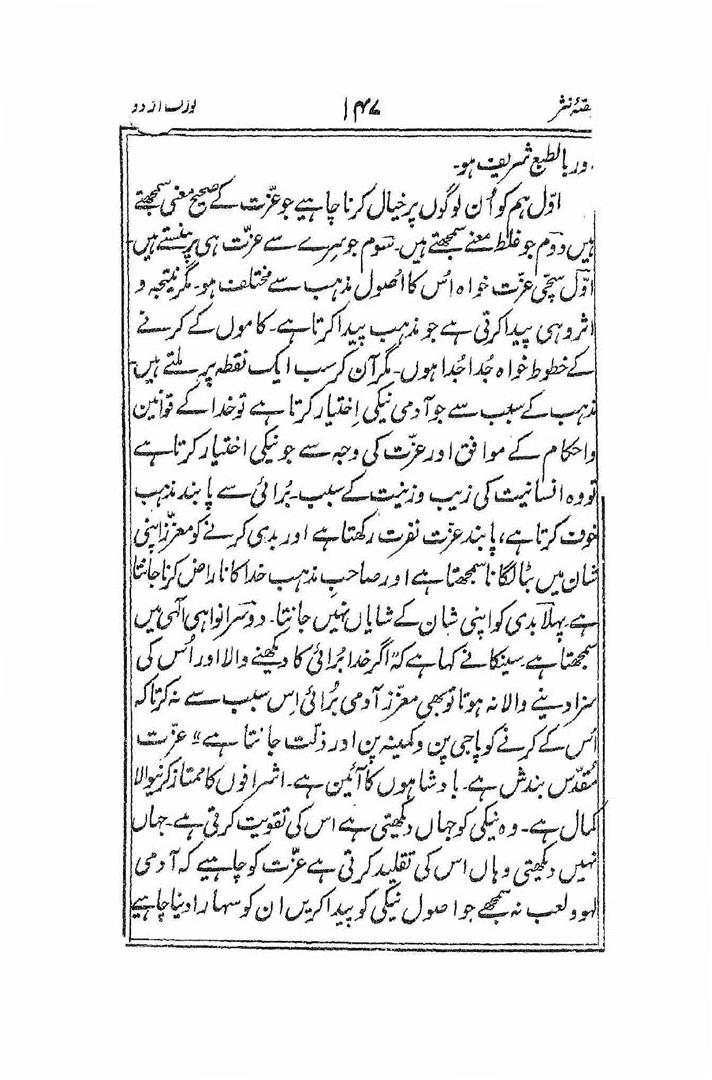 حصۂ نثر ۱۴۷ نورتن اردو
اور بالطبع شریف ہو۔
اوّل ہم کو اُن لوگوں پر خیال کرنا چاہیے جو عزّت کے صحیح معنی سمجھتے
ہیں دوم جو غلط معنے سمجھتے ہیں۔ سوم جو سرے سے عزّت ہی پر ہنستے ہیں
اوّل سچّی عزّت خواہ اُس کا اُصول مذہب سے مختلف ہو۔ مگر نتیجہ و
اثر وہی پیدا کرتی ہے جو مذہب پیدا کرتا ہے۔ کاموں کے کرنے
کے خطوط خواہ جُدا جُدا ہوں۔ مگر آن کر سب ایک نقطہ پر ملتے ہیں۔
مذہب کے سبب سے جو آدمی نیکی اِختیار کرتا ہے تو خدا کے قوانین
و احکام کے موافق اور عزّت کی وجہ سے جو نیکی اختیار کرتا ہے
تو وہ انسانیت کی زیب و زینت کے سبب۔ بُرائی سے پابند مذہب
خوف کرتا ہے، پابند عزّت نفرت رکھتا ہے اور بدی کرنے کو معزّز اپنی
شان میں بٹا لگانا سمجھتا ہے اور صاحبِ مذہب خدا کا ناراض کرنا جانتا
ہے پہلا بدی کو اپنی شان کے شایاں نہیں جانتا۔ دوسرا نواہی الٰہی میں
سمجھتا ہے۔ سینکا نے کہا ہے کہ "اگر خدا بُرائی کا دیکھنے والا اور اُس کی
سزا دینے والا نہ ہوتا تو بھی معزّز آدمی بُرائی اِس سبب سے نہ کرتا کہ
اُس کے کرنے کو پاجی پن و کمینہ پن اور ذلّت جانتا ہے" عزّت
مُقدّس بندش ہے۔ بادشاہوں کا آئین ہے۔ اشرافوں کا ممتاز کرنیوالا
کمال ہے۔ وہ نیکی کو جہاں دیکھتی ہے اس کی تقویت کرتی ہے۔ جہاں
نہیں دیکھتی وہاں اس کی تقلید کرتی ہے عزّت کو چاہیے کہ آدمی
لہو و لعب نہ سمجھے جو اصول نیکی کو پیدا کریں ان کو سہارا دینا چاہیے